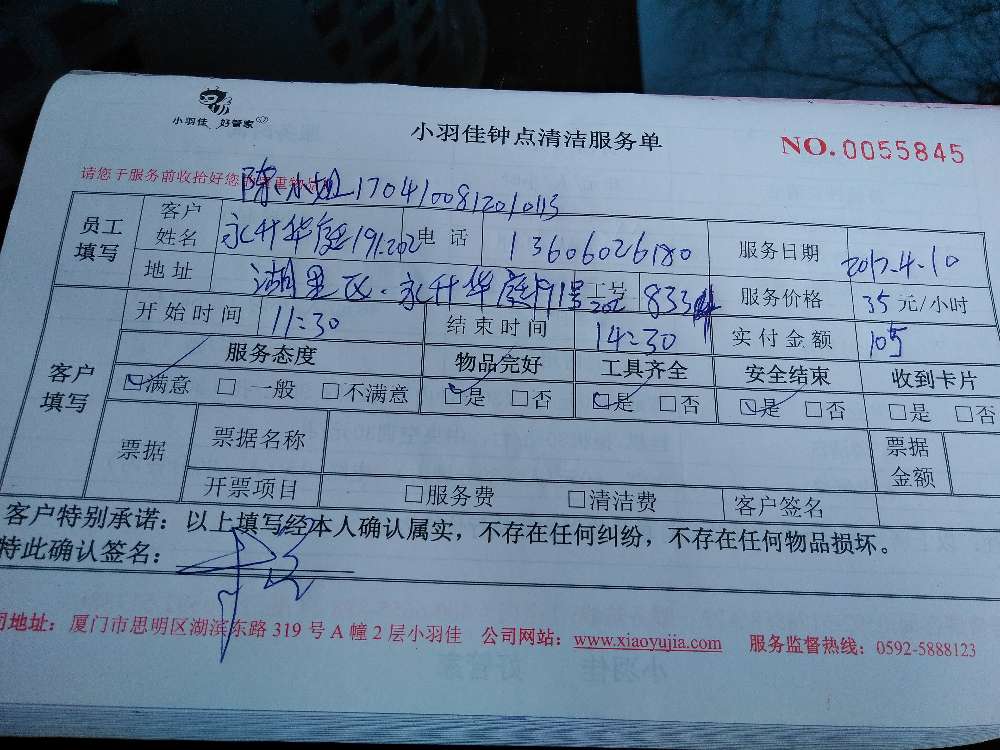 小羽佳 好管家
小羽佳钟点清洁服务单
NO.0055845
请您于服务前收拾好您的贵重物品
陈小姐17041008120103
员工填写 客户姓名 永升华庭191.202 电话 13606026180 服务日期 2017.4.10
地址 湖里区.永升华庭191号202 工号 833 服务价格 35元/小时
开始时间 11:30 结束时间 14:30 实付金额 105
客户填写 服务态度 物品完好 工具齐全 安全结束 收到卡片
☑满意 □一般 □不满意 ☑是 □否 ☑是 □否 ☑是 □否 □是 □否
票据 票据名称 票据金额
开票项目 □服务费 □清洁费 客户签名
客户特别承诺：以上填写经本人确认属实，不存在任何纠纷，不存在任何物品损坏。
特此确认签名：
司地址：厦门市思明区湖滨东路319号A幢2层小羽佳 公司网站：www.xiaoyujia.com 服务监督热线：0592-5888123